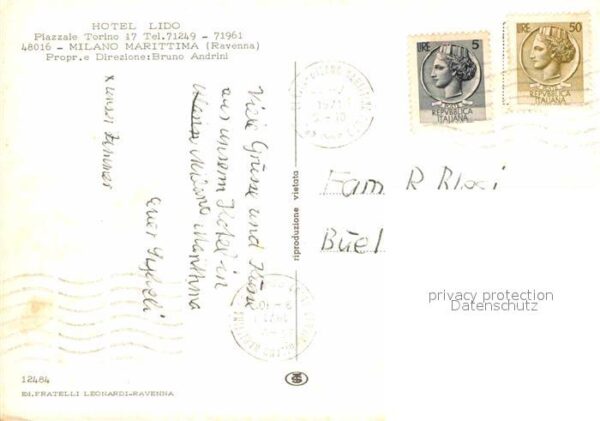 HOTEL LIDO
Piazzale Torino 17 Tel.71249 - 71961
48016 - MILANO MARITTIMA (Ravenna)
Propr.e Direzione: Bruno Andrini
Viele Grüsse und Küsse
aus unserm Hotel in
Milano Marittima
x unser Zimmer
euer
riproduzione vietata
LIRE 5
REPVBBLICA
ITALIANA
LIRE 50
REPVBBLICA
ITALIANA
1971
Fam R
Büel
privacy protection
Datenschutz
12484
Ed. FRATELLI LEONARDI-RAVENNA